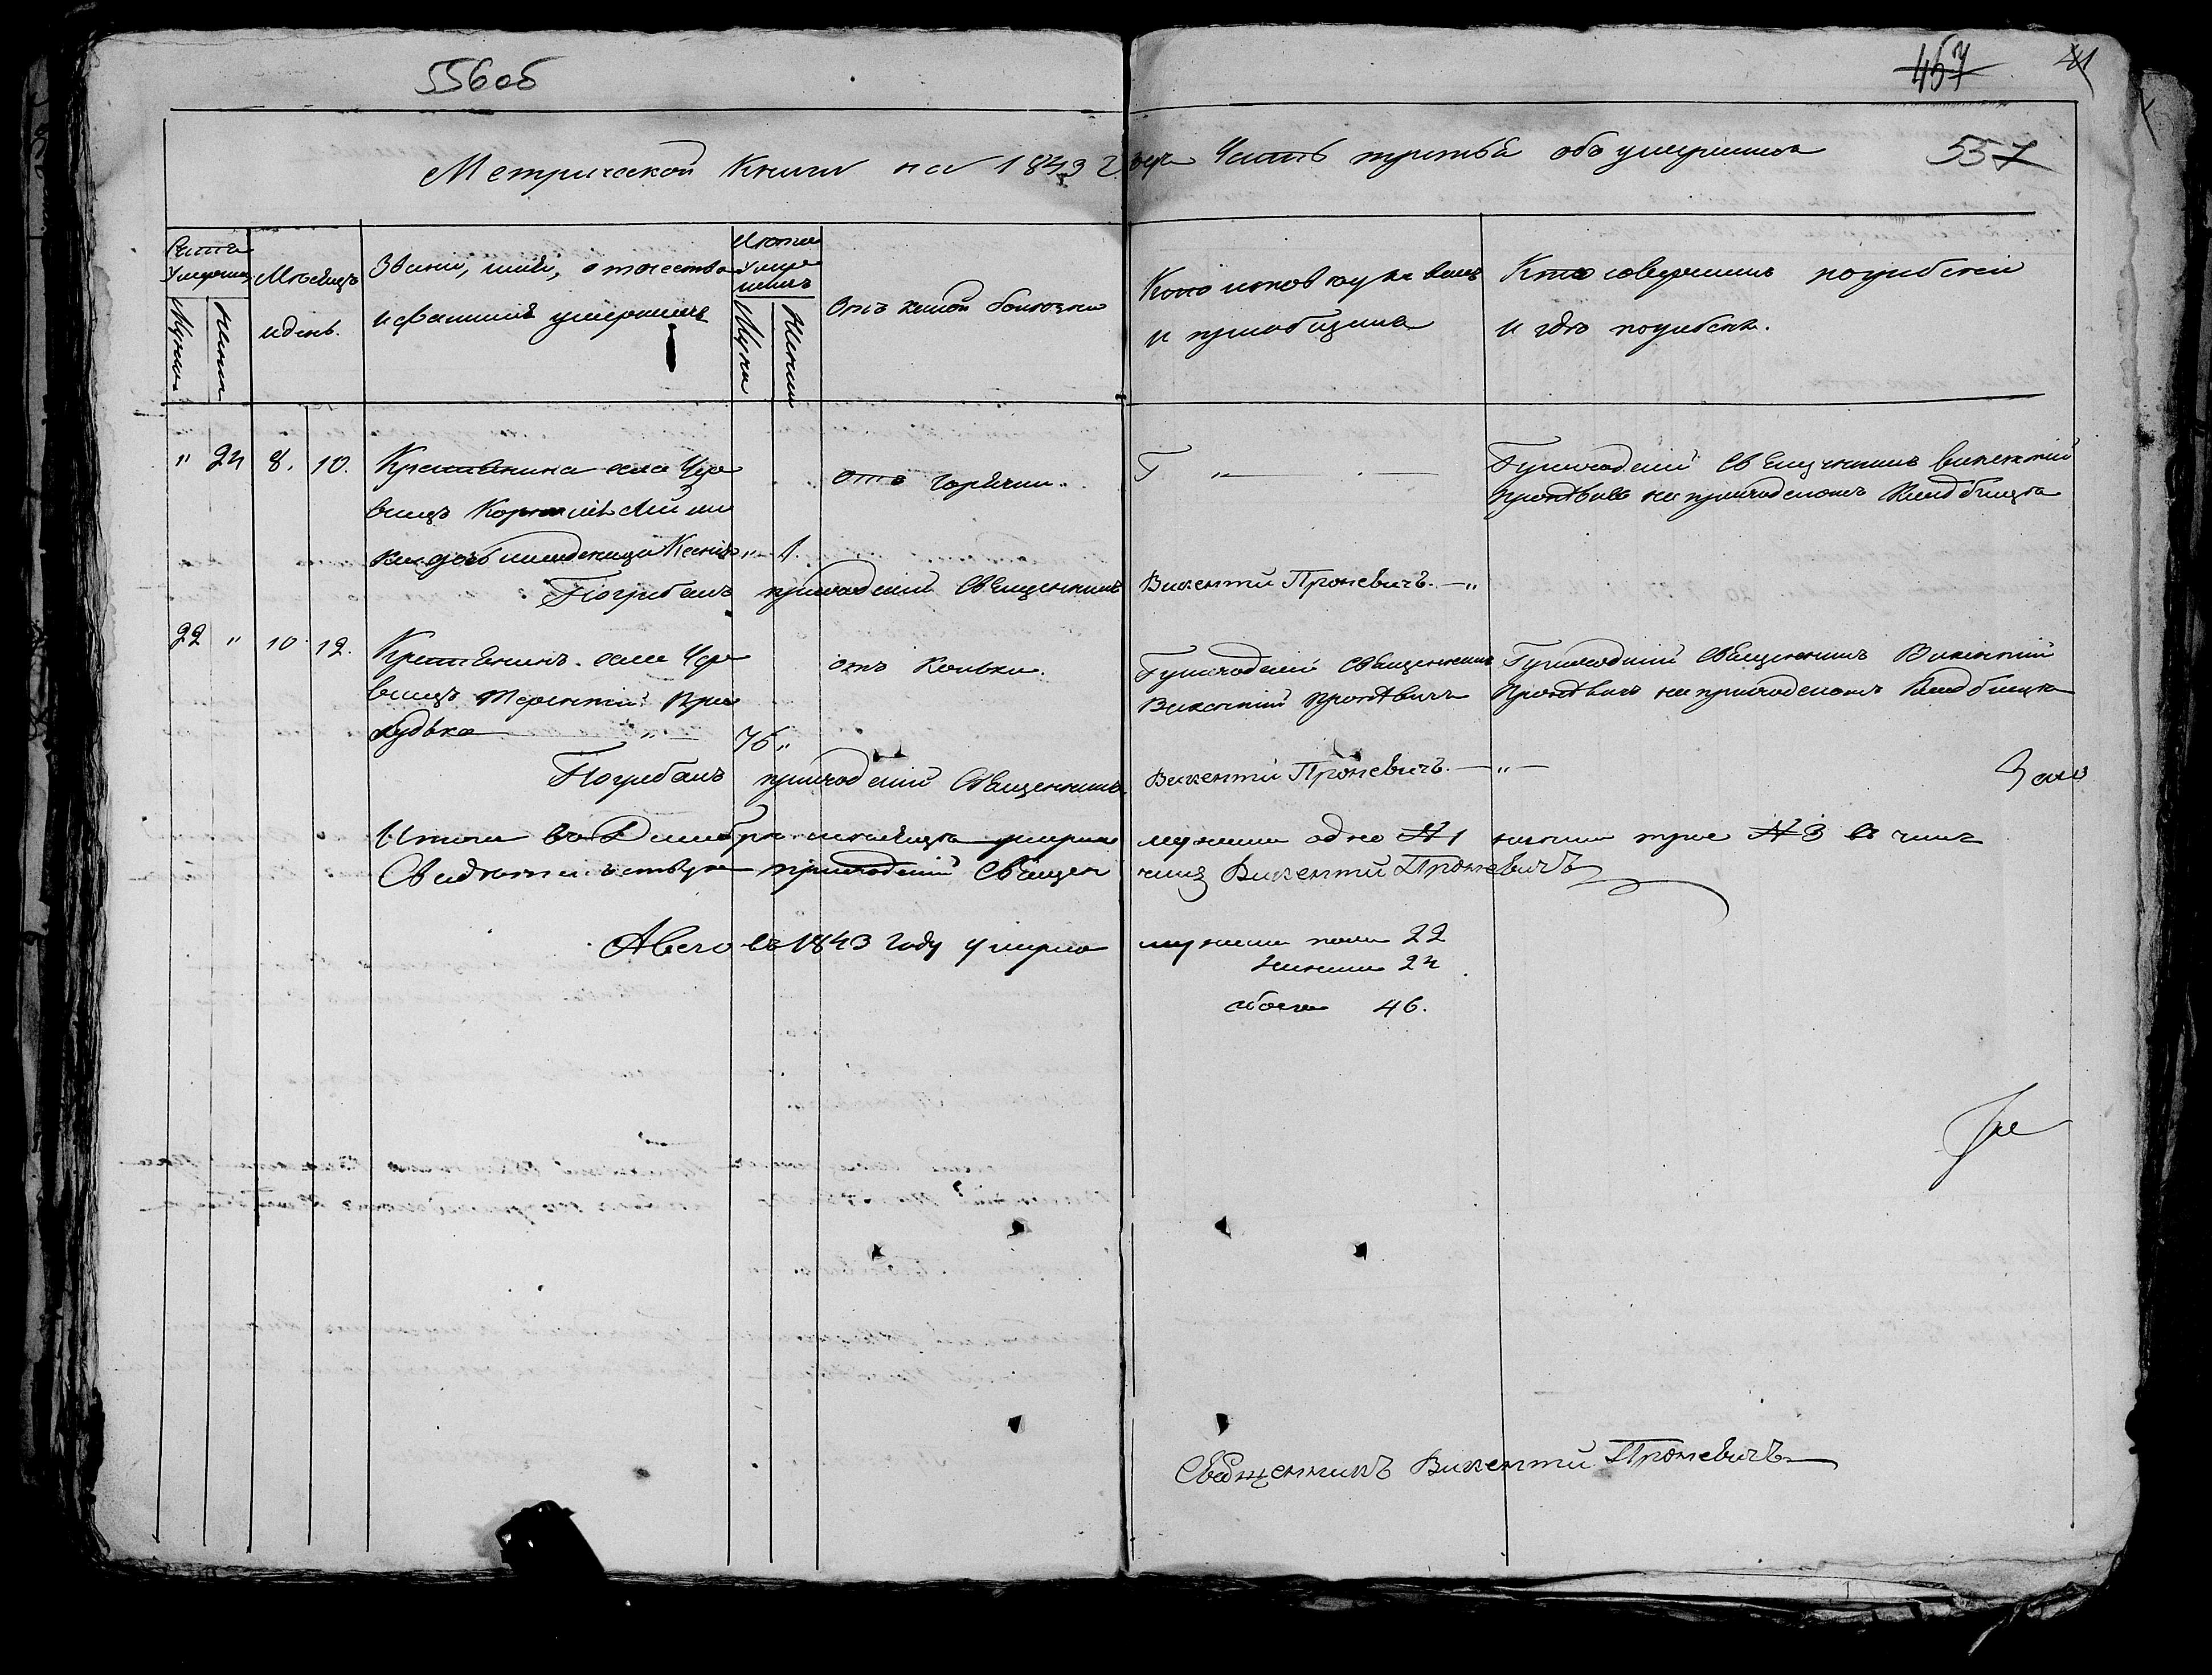 556об
457
41
Метрической Книги на 1843 годъ Часть третья объ умершихъ
557
Счетъ умершихъ
Мужеска
Женска
Мѣсяцъ
и день.
Званіе, имя, отчество
и фамилія умершихъ
Лѣта умершихъ
Мужска
Женска
Отъ какой болезни
Кто исповѣдывалъ
и пріобщалъ
Кто совершилъ погребеніе
и гдѣ погребены.
" 24 8. 10.
Крестьянина села Чере
вищъ
дочь младеница Ксенія " 1.
отъ горячки.
"
Приходскій Священникъ Викентій
Проневичъ на приходскомъ кладбищѣ
Погребалъ приходскій Священникъ Викентій Проневичъ. — "
22 " 10. 12.
Крестьянинъ села Чере
вищъ Терентій
76 "
отъ Кольки.
Приходскій Священникъ
Викентій Проневичъ
Приходскій Священникъ Викентій
Проневичъ на приходскомъ кладбищѣ
Погребалъ приходскій Священникъ Викентій Проневичъ. — " —
Итого въ Декабрѣ мѣсяцѣ умерло мужеска одно № 1 женска трое № 3 въ чемъ
Свидѣтельствую приходскій Священникъ Викентій Проневичъ
А всего въ 1843 году умерло мужеска пола 22
женска 24
обоего 46.
Священникъ Викентій Проневичъ